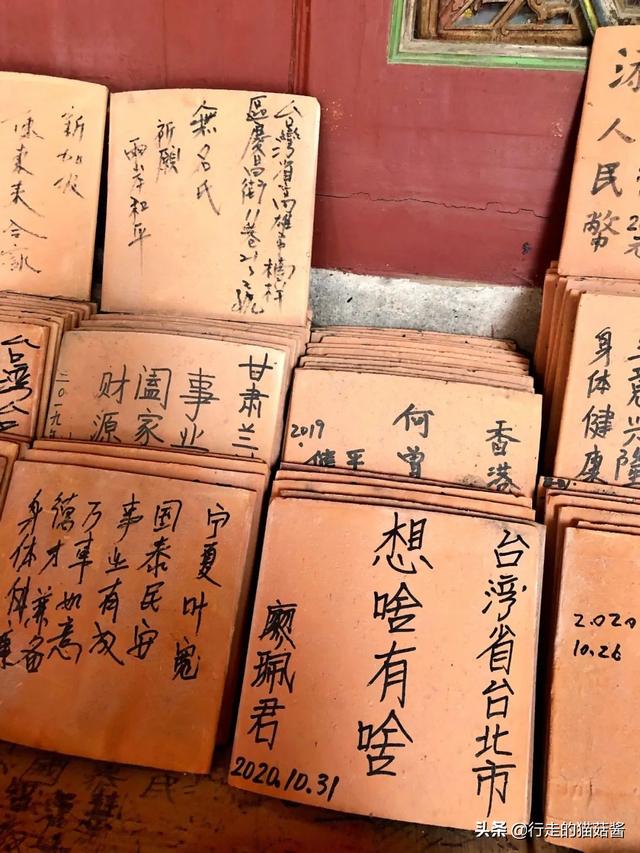 新加坡
台灣省高雄市楠梓
區慶昌街11巷21之2號
無名氏
祈願
兩岸和平
人民幣
台湾
甘肃兰
事业
阖家
财源
二〇一九年
香港
何曾
健平
2019
兴隆
身体健康
宁夏叶宽
国泰民安
事业有成
万事如意
德才兼备
身体健康
台湾省台北市
想啥有啥
廖珮君
2020.10.31
2020
10.26
头条 @行走的猫菇酱